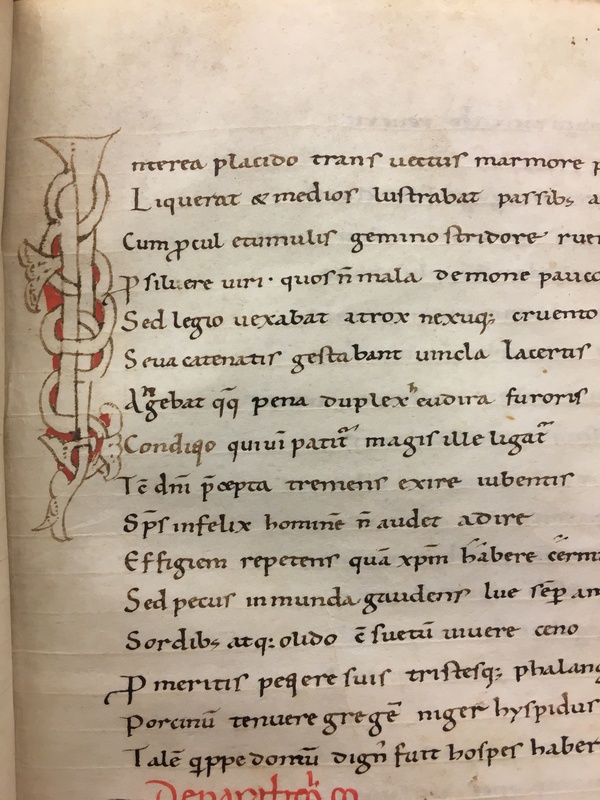 Interea placido trans uectus marmore p
Liquerat & medios lustrabat passib; a
Cum pcul etumulis gemino stridore ruer
Psiluere uiri· quos n̄ mala demone pauco
Sed legio uexabat atrox nexuq; cruento
Seua catenatis gestabant uincla lacertis
pena duplex eudira furoris
Condiqo quiuī patit̄ magis ille ligat̄
Tc̄ dn̄i p̄cepta tremens exire iubentis
Sp̄s infelix hominē n̄ audet adire
Effigiem repetens quā xp̄m habere cerm
Sed pecus inmunda gaudens lue sēp am
Sordib; atq; olido ē suetū uiuere ceno
P meritis peqere suis tristesq; phalang
Porcinū tenuere gregē niger hyspidus
Talē qppe domū dign̄ fuit hospes haber